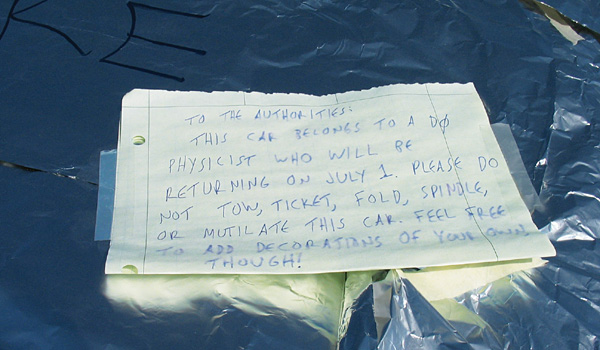 KE
TO THE AUTHORITIES:
THIS CAR BELONGS TO A DØ
PHYSICIST WHO WILL BE
RETURNING ON JULY 1. PLEASE DO
NOT TOW, TICKET, FOLD, SPINDLE,
OR MUTILATE THIS CAR. FEEL FREE
TO ADD DECORATIONS OF YOUR OWN,
THOUGH!